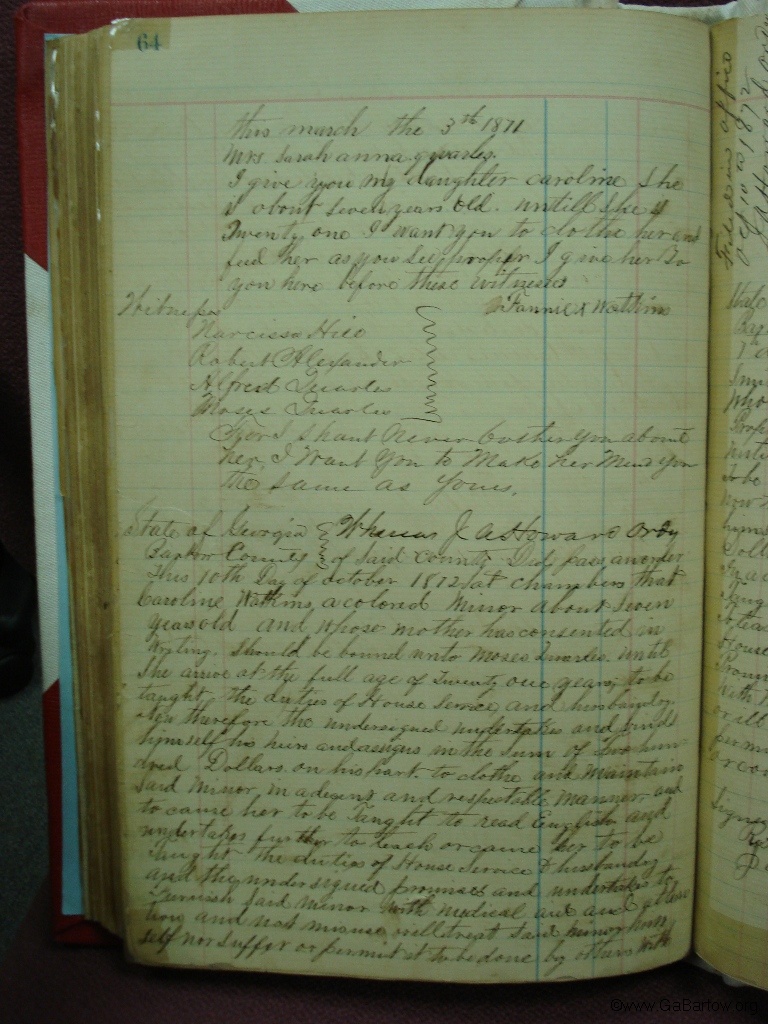 64
this march the 3th 1871
Mrs Sarah anna quarles.
I give you my daughter caroline she
is about seven years old. untill she is
Twenty one I want you to clothe her and
feed her as you see proper I give her to
you here before these witnesses
Fannie X Watkins
Witness
Narcissa Hill
Robert Alexander
Alfred Quarles
Moses Quarles
I shant Never bother you about
her, I Want You to Make her Mind you
the same as yours.
State of Georgia } Whereas J A Howard Ordy
Bartow County } of said County Did, pass an order
This 10th Day of October 1872 at chambers that
Caroline Watkins, a colored Minor about Seven
years old and whose mother has consented in
Writing. Should be bound unto Moses Quarles. until
She arrive at the full age of twenty one years, to be
taught, the duties of House Service and husbandry.
Now therefore the undersigned undertakes and binds
himself his heirs and assigns in the Sum of two hun
dred Dollars. on his part to clothe and Maintain
said Minor, in a decent and respectable Manner and
to cause her to be Taught to read English and
undertakes further to teach or cause her to be
Taught the duties of House Service & husbandry
and the undersigned promises and undertakes to
Furnish said minor with medical aid and atten
tion and not misuse or illtreat said minor him
self nor suffer or permit it to be done by others With
Filed in office
Oct 10th 1872
J A Howard
State
©www.GaBartow.org